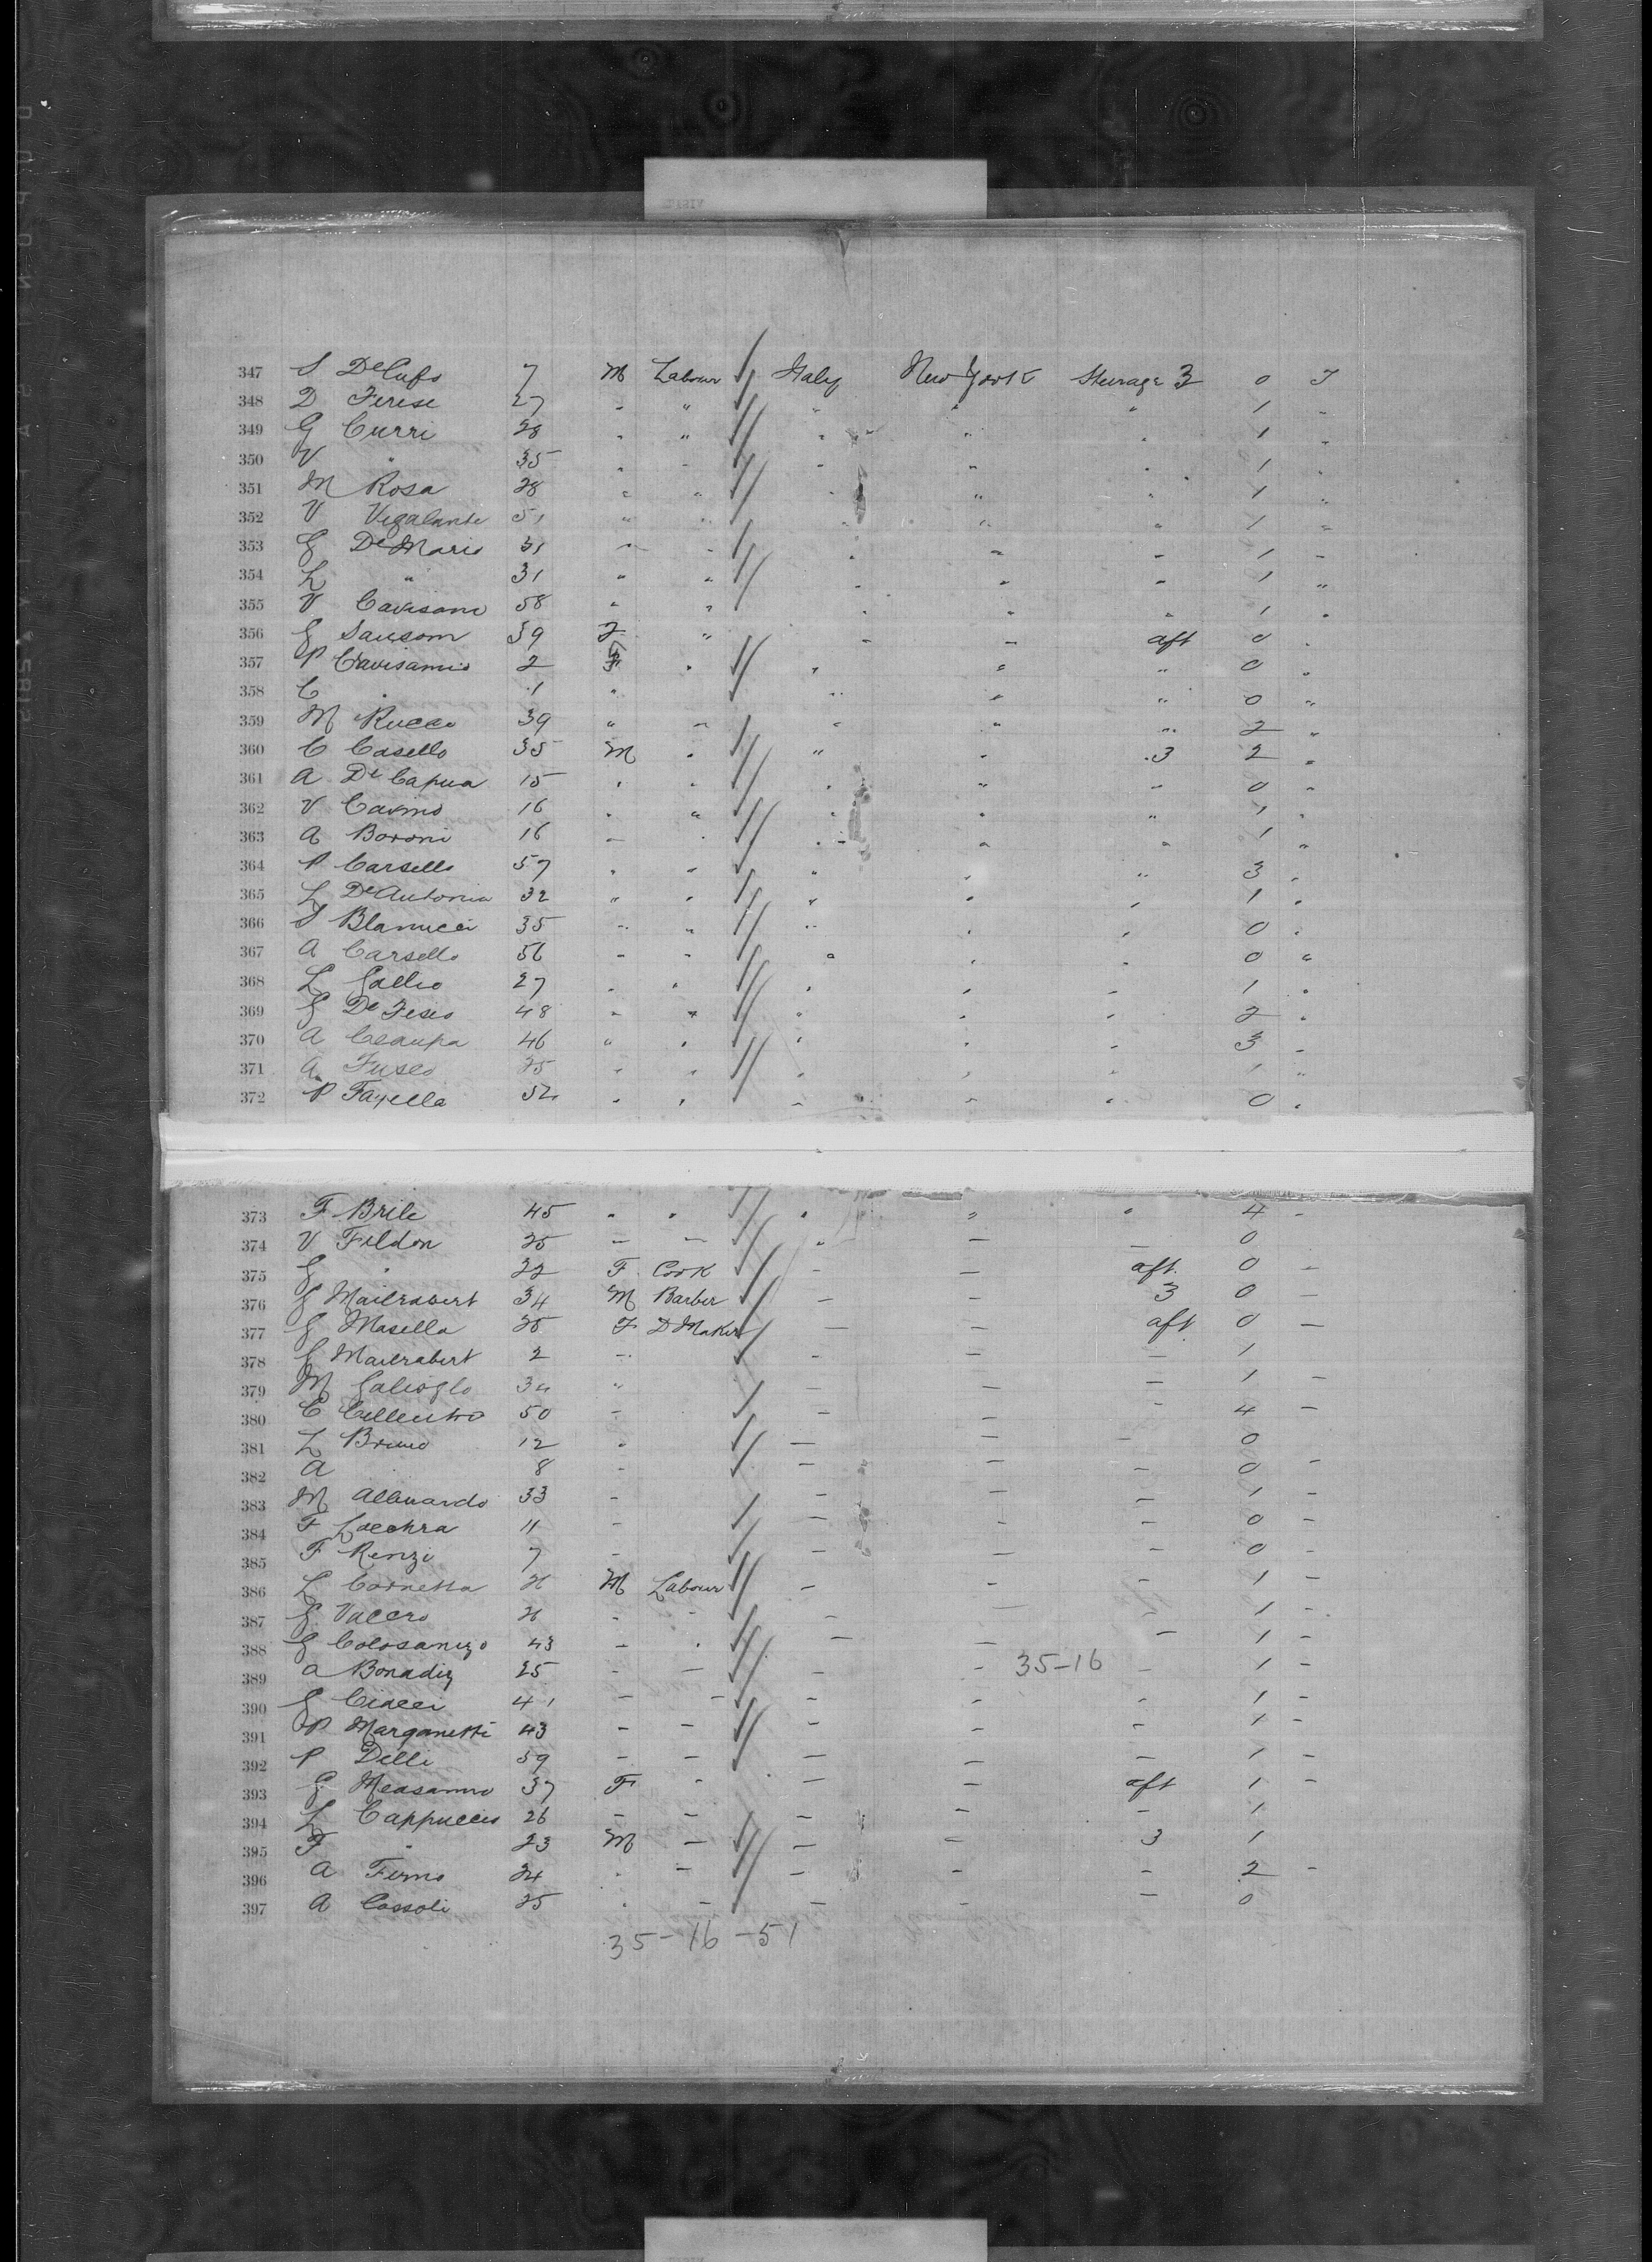 347 S DeCufo 7 M Labour Italy New York Steerage 3 0 T
348 D Ferese 27 " " " " " 1 "
349 G Curri 28 " " " " " 1 "
350 V " 35 " " " " " 1 "
351 M Rosa 28 " " " " " 1 "
352 V Vigalante 51 " " " " " 1 "
353 G DeMario 31 " " " " " 1 "
354 L " 31 " " " " " 1 "
355 V Cavisano 58 " " " " " 1 "
356 G Sansom 59 F " " " aft 0 "
357 P Cavisamio 2 F " " " " 0 "
358 C " 1 " " " " 0 "
359 M Rucco 39 " " " " " 2 "
360 C Casello 35 M " " " 3 2 "
361 A DeCapua 15 " " " " " 0 "
362 V Caomo 16 " " " " " 1 "
363 A Boroni 16 " " " " " 1 "
364 P Carsello 57 " " " " " 3 "
365 L DeAntonia 32 " " " " " 1 "
366 S Blanucci 35 " " " " " 0 "
367 A Carsello 56 " " " " " 0 "
368 L Gallio 27 " " " " " 1 "
369 G DeFesio 48 " " " " " 2 "
370 A Ceaupa 46 " " " " " 3 "
371 A Fusco 25 " " " " " 1 "
372 P Fayella 52 " " " " " 0 "
373 F Brile 45 " " " " " 4 -
374 V Fildon 25 - - " - - 0
375 G " 22 F Cook - - aft 0 -
376 G Mailrabert 34 M Barber - - 3 0 -
377 G Masella 25 F D Maker - - aft 0 -
378 G Mailrabert 2 - - - - 1
379 M Galioglo 34 " - - - 1 -
380 C Cellentro 50 - - - - 4 -
381 L Bruno 12 " - - - 0
382 A " 8 - - - - 0 -
383 M Albuardo 33 - - - - 1 -
384 F Lacchra 11 - - - - 0 -
385 F Renzi 7 - - - - 0 -
386 L Cornetta 26 M Labour - - - 1 -
387 G Vaccro 26 - - - - - 1 -
388 G Colosanizo 43 - " - - - 1 -
389 A Bonadiz 25 - - - - 35-16 - 1 -
390 G Ciacci 41 - - - - - 1 -
391 P Marganetti 43 - - - - - 1 -
392 P Delli 59 - - - - - 1 -
393 G Measanno 37 F - - - aft 1 -
394 L Cappuccio 26 - - - - - 1
395 F " 23 M - - - 3 1
396 A Firmo 24 " - - - - 2 -
397 A Cassoli 25 " - - - - 0
35-16-51